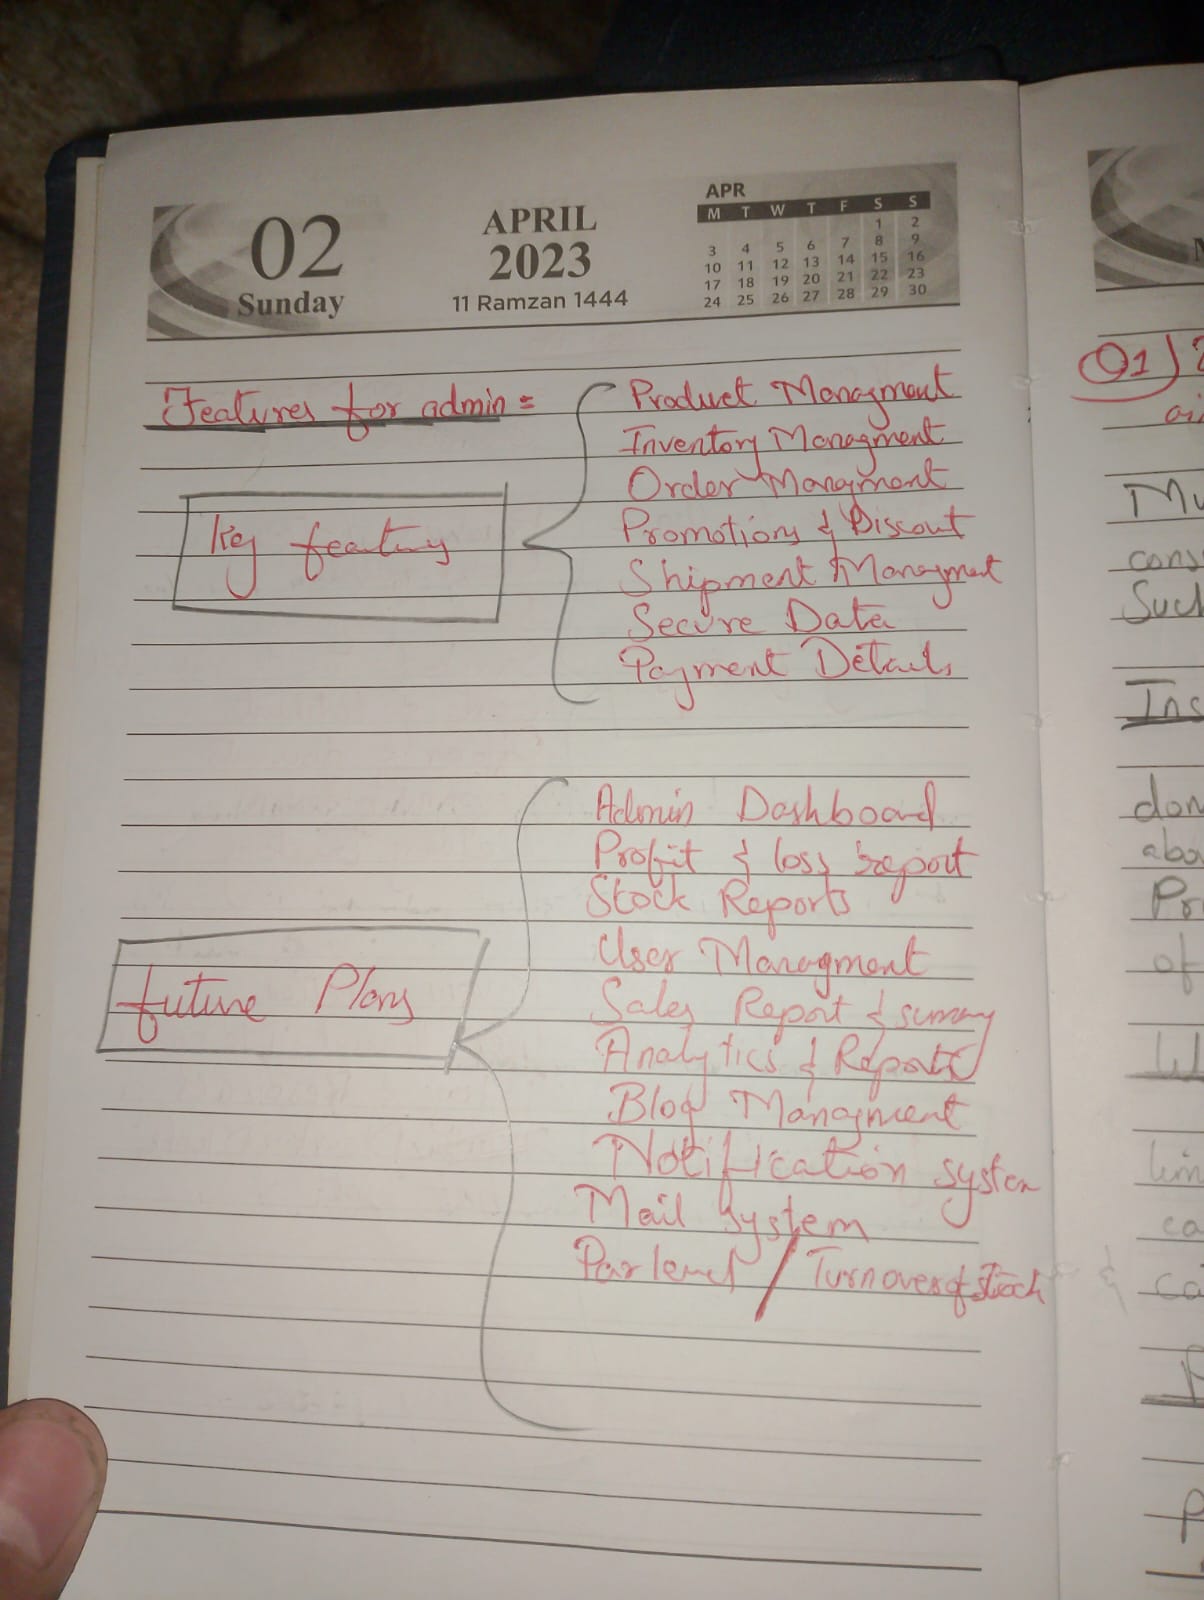 02
Sunday
APRIL
2023
11 Ramzan 1444
APR
M T W T F S S
1 2
3 4 5 6 7 8 9
10 11 12 13 14 15 16
17 18 19 20 21 22 23
24 25 26 27 28 29 30
Features for admin =
Key features
Product Managment
Inventory Managment
Order Managment
Promotions & Discout
Shipment Managment
Secure Data
Payment Details
Future Plans
Admin Dashboard
Profit & loss report
Stock Reports
User Managment
Sales Report & summary
Analytics & Reports
Blog Managment
Notification system
Mail System
Par level / Turnover of stock
Q1)
Mu
cons
Such
Ins
don
abo
Pr
of
lim
ca
ca